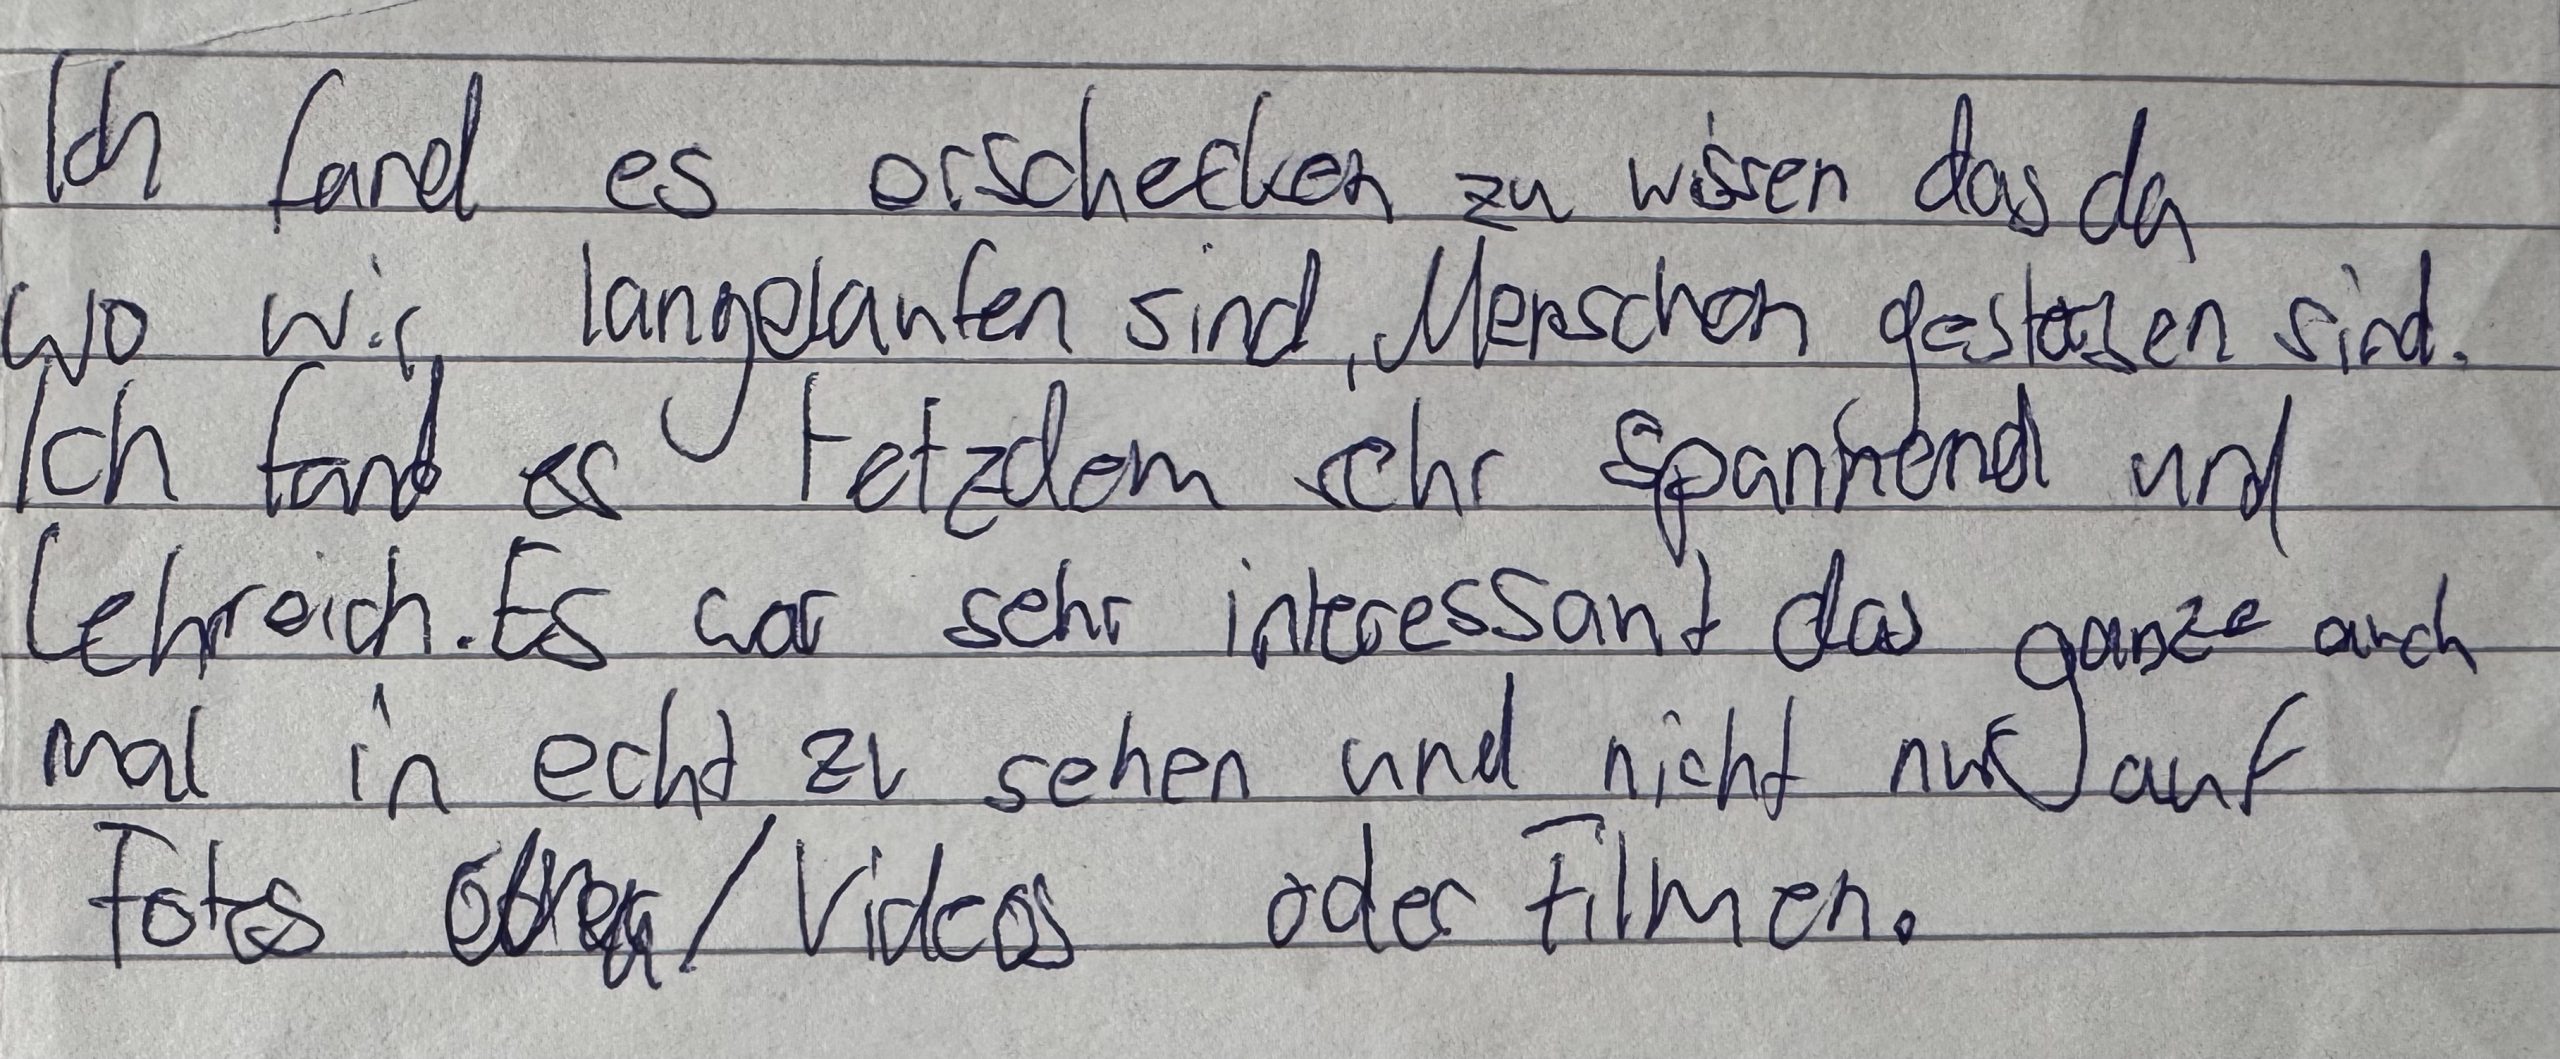 Ich fand es erschecken zu wissen das da
wo wir langelaufen sind, Menschen gestorben sind.
Ich fand es tetzdem sehr spannend und
Lehreich. Es war sehr interessant das ganze auch
mal in echt zu sehen und nicht nur auf
Fotos /Videos oder Filmen.